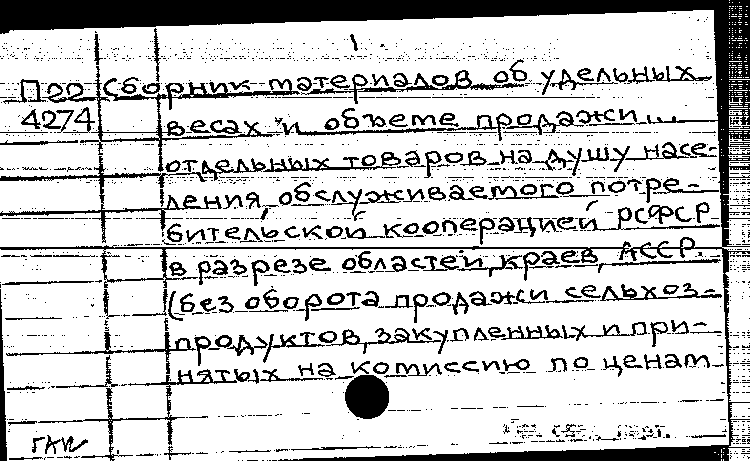 1.
Поо Сборник материалов об удельных
4274 весах и объеме продажи...
отдельных товаров на душу насе-
ления, обслуживаемого потре-
бительской кооперацией РСФСР
в разрезе областей, краев, АССР.
(без оборота продажи сельхоз-
продуктов, закупленных и при-
нятых на комиссию по ценам